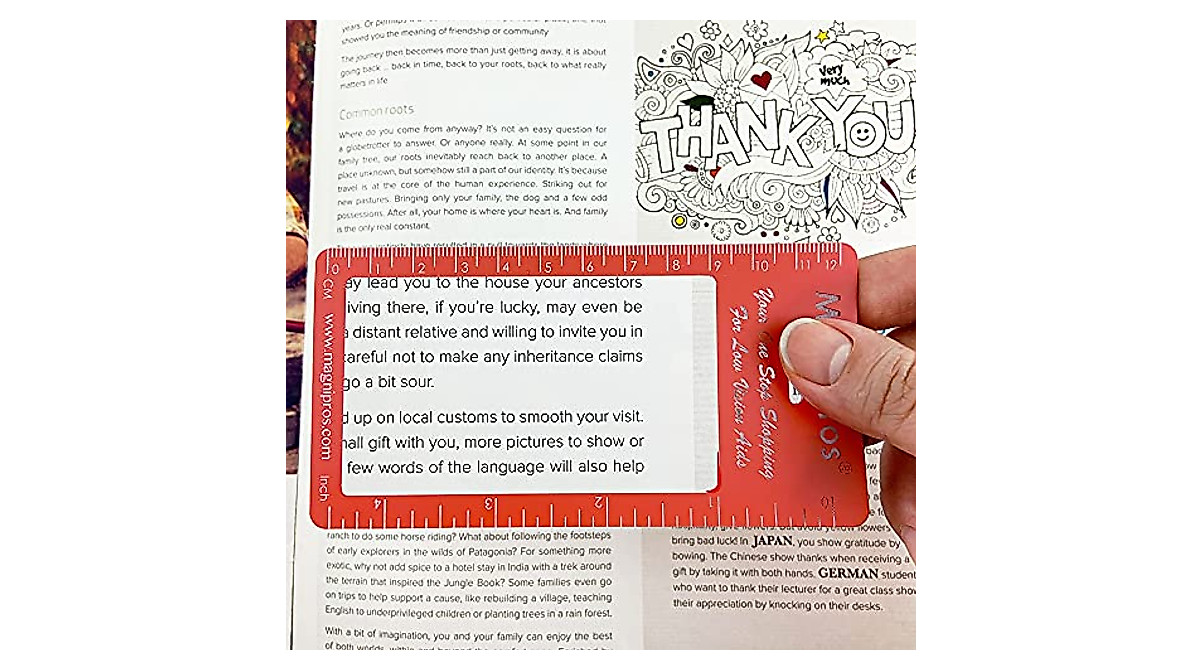 showed you the meaning of friendship or community
The journey then becomes more than just getting away, it is about
going back ... back in time, back to your roots, back to what really
matters in life
Common roots
Where do you come from anyway? It's not an easy question for
a globetrotter to answer. Or anyone really. At some point in our
family tree, our roots inevitably reach back to another place. A
place unknown, but somehow still a part of our identity. It's because
travel is at the core of the human experience. Striking out for
new pastures. Bringing only your family, the dog and a few odd
possessions. After all, your home is where your heart is. And family
is the only real constant.
very
much
THANK YOU
0 1 2 3 4 5 6 7 8 9 10 11 12
CM
www.magnipros.com
Inch
lead you to the house your ancestors
there, if you're lucky, may even be
distant relative and willing to invite you in
not to make any inheritance claims
go a bit sour.
up on local customs to smooth your visit.
gift with you, more pictures to show or
few words of the language will also help
Your Stop Shopping
For Low Vision Aids
4 3 2 1 0
ranch to do some horse riding? What about following the footsteps
of early explorers in the wilds of Patagonia? For something more
exotic, why not add spice to a hotel stay in India with a trek around
the terrain that inspired the Jungle Book? Some families even go
on trips to help support a cause, like rebuilding a village, teaching
English to underprivileged children or planting trees in a rain forest.
With a bit of imagination, you and your family can enjoy the best
bring bad luck! In JAPAN, you show gratitude by
bowing. The Chinese show thanks when receiving a
gift by taking it with both hands. GERMAN student
who want to thank their lecturer for a great class show
their appreciation by knocking on their desks.